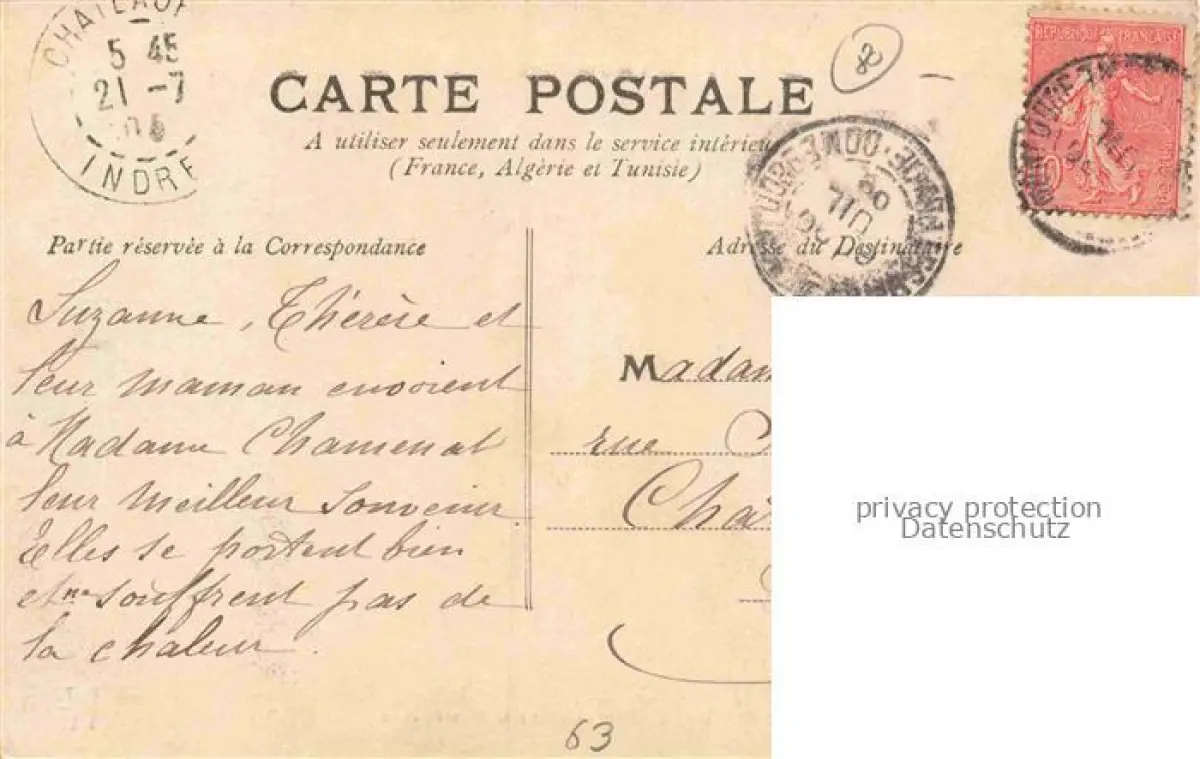 CHATEAUR
5 45
21 -7
INDRE
CARTE POSTALE
A utiliser seulement dans le service intérieu
(France, Algérie et Tunisie)
REPUBLIQUE FRANÇAISE
JUIL
Partie réservée à la Correspondance
Adresse du Destinataire
Suzanne, Thérèse et
leur maman envoient
à Madame Chamenat
leur meilleur souvenir.
Elles se portent bien
et ne souffrent pas de
la chaleur.
Madam
rue
Châ
privacy protection
Datenschutz
63